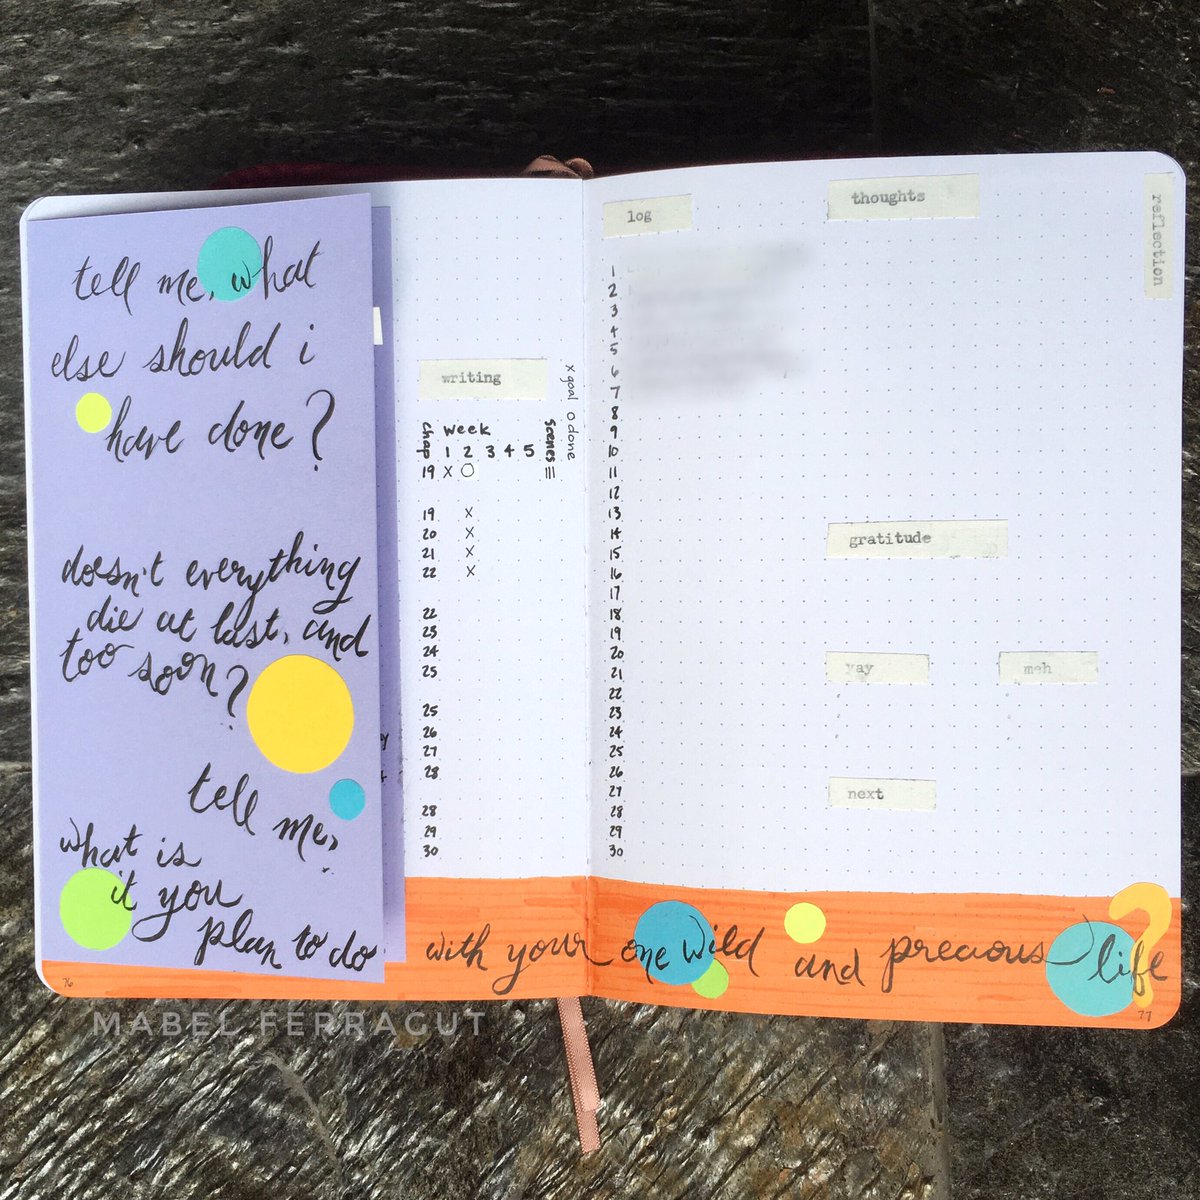 tell me, what
else should i
have done?
doesn't everything
die at last, and
too soon?
tell me,
what is
it you
plan to do
with your one wild and precious life?
76
writing
x goal O done
chap week scenes
1 2 3 4 5
19 X O |||
19 X
20 X
21 X
22 X
22
23
24
25
25
26
27
28
28
29
30
log
1
2
3
4
5
6
7
8
9
10
11
12
13
14
15
16
17
18
19
20
21
22
23
24
25
26
27
28
29
30
thoughts
reflection
gratitude
yay
meh
next
77
MABEL FERRAGUT